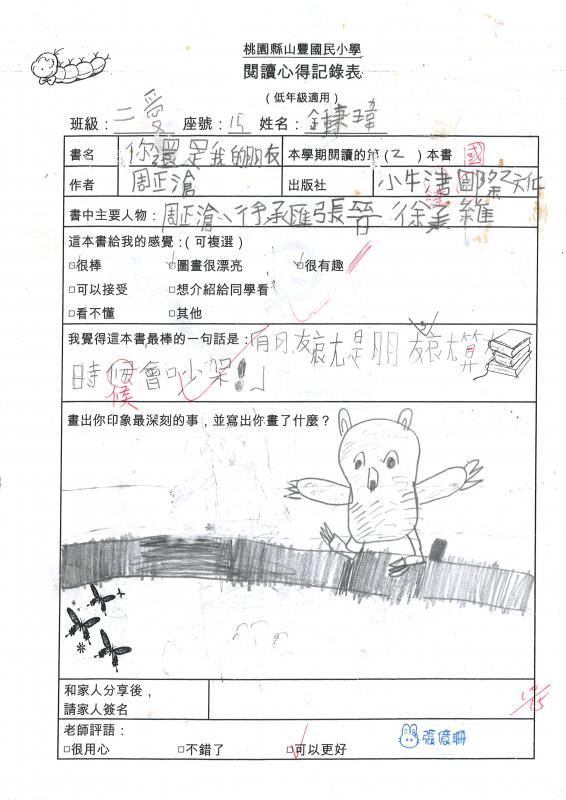 桃園縣山豐國民小學
閱讀心得記錄表
（低年級適用）
班級：二愛 座號：15 姓名：鍾
書名 你還是我的朋友 本學期閱讀的第（2）本書 國
作者 周正滄 出版社 小牛津國際文化
書中主要人物：周正滄、徐承匯張晉 徐美維
這本書給我的感覺：（可複選）
□很棒 □圖畫很漂亮 □很有趣
□可以接受 □想介紹給同學看
□看不懂 □其他
我覺得這本書最棒的一句話是：
時候會吵架！」
候
畫出你印象最深刻的事，並寫出你畫了什麼？
和家人分享後，
請家人簽名
老師評語：
□很用心 □不錯了 □可以更好
張億珊